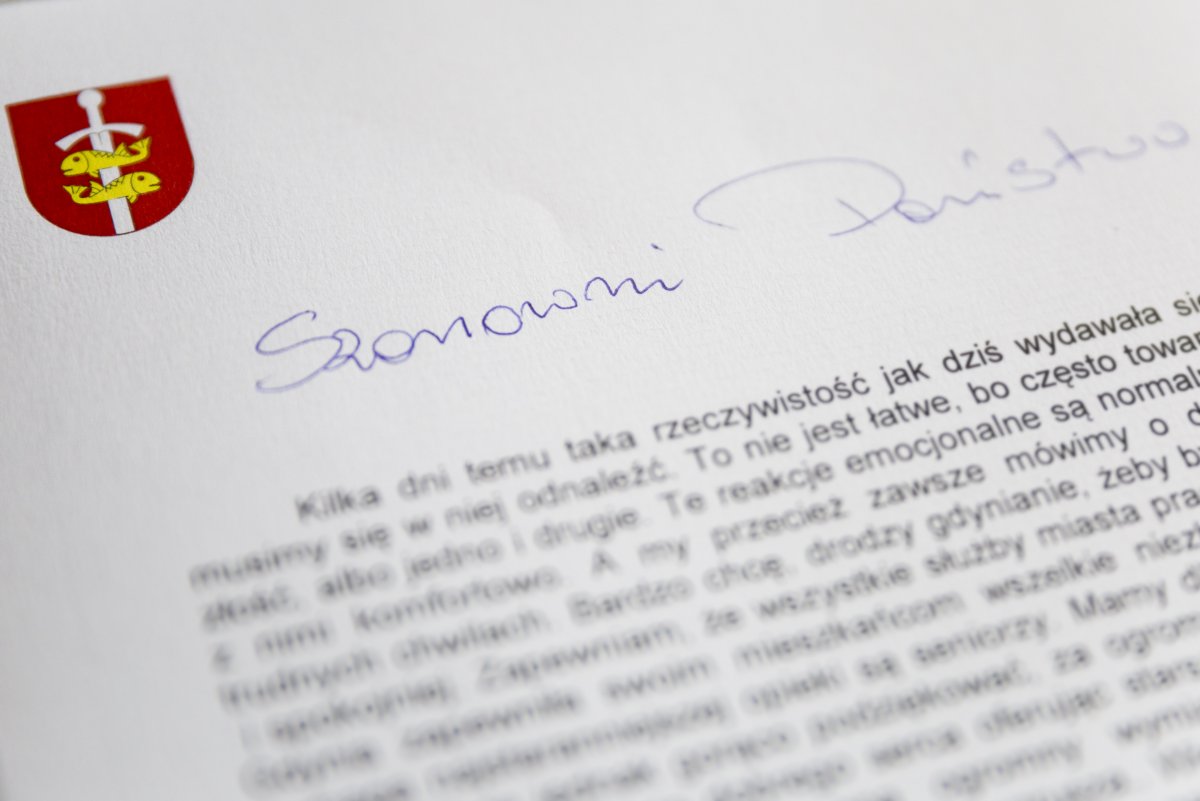 Szanowni Państwo
Kilka dni temu taka rzeczywistość jak dziś wydawała się
musimy się w niej odnaleźć. To nie jest łatwe, bo często towar
złość, albo jedno i drugie. Te reakcje emocjonalne są normaln
z nimi komfortowo. A my przecież zawsze mówimy o d
trudnych chwilach. Bardzo chcę, drodzy gdynianie, żeby b
i spokojniej. Zapewniam, że wszystkie służby miasta pra
Gdynia zapewniła swoim mieszkańcom wszelkie niezb
najstaranniejszej opieki są seniorzy. Mamy d
gorąco podziękować, za ogrom
serca oferując stars
ogromny wymi